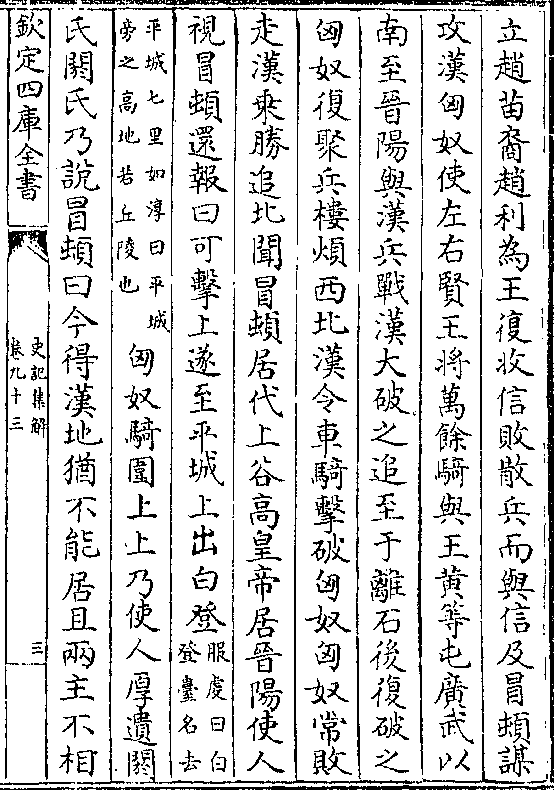 立趙苗裔趙利為王復收信敗散兵而與信及冒頓謀
攻漢匈奴使左右賢王將萬餘騎與王黄等屯廣武以
南至晉陽與漢兵戰漢大破之追至于離石後復破之
匈奴復聚兵樓煩西北漢令車騎擊破匈奴匈奴常敗
走漢乘勝追北聞冒頓居代上谷高皇帝居晉陽使人
視冒頓還報曰可擊上遂至平城上出白登
服虔曰白
登臺名去
平城七里如淳曰平城
旁之高地若丘陵也
匈奴騎圍上上乃使人厚遺閼
氏閼氏乃說冒頓曰今得漢地猶不能居且兩主不相
欽定四庫全書
史記集解
卷九十三
三